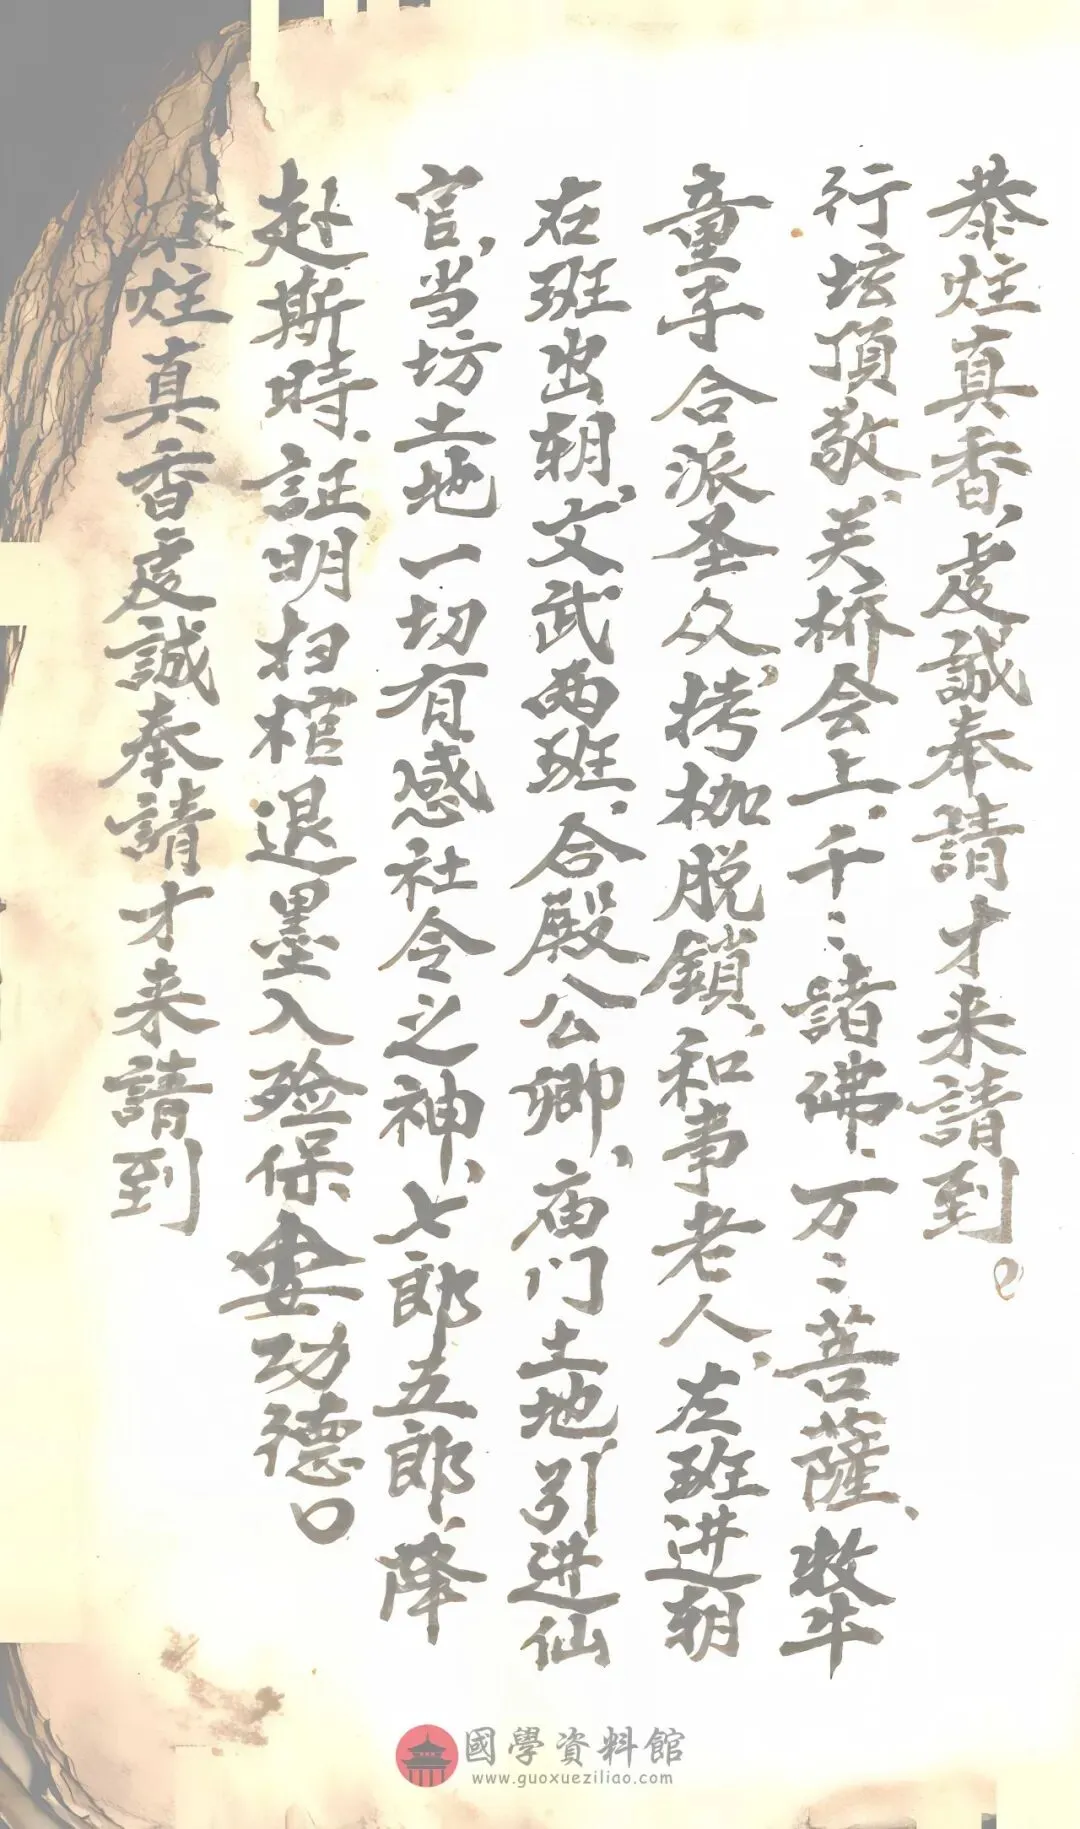 恭炷真香、虔誠奉請才来請到。
行坛頂敬、关桥会上、千〻諸佛、万〻菩薩、牧牛
童子合派圣众、拷枷脱鎖、和事老人、左班进朝
右班出朝、文武两班、合殿公卿、庙门土地、引进仙
官、当坊土地一切有感社令之神、七郎五郎、降
赴斯時、証明扫棺退墨入殓保、功德口
炷真香虔誠奉請才来請到
國學資料館
www.guoxueziliao.com